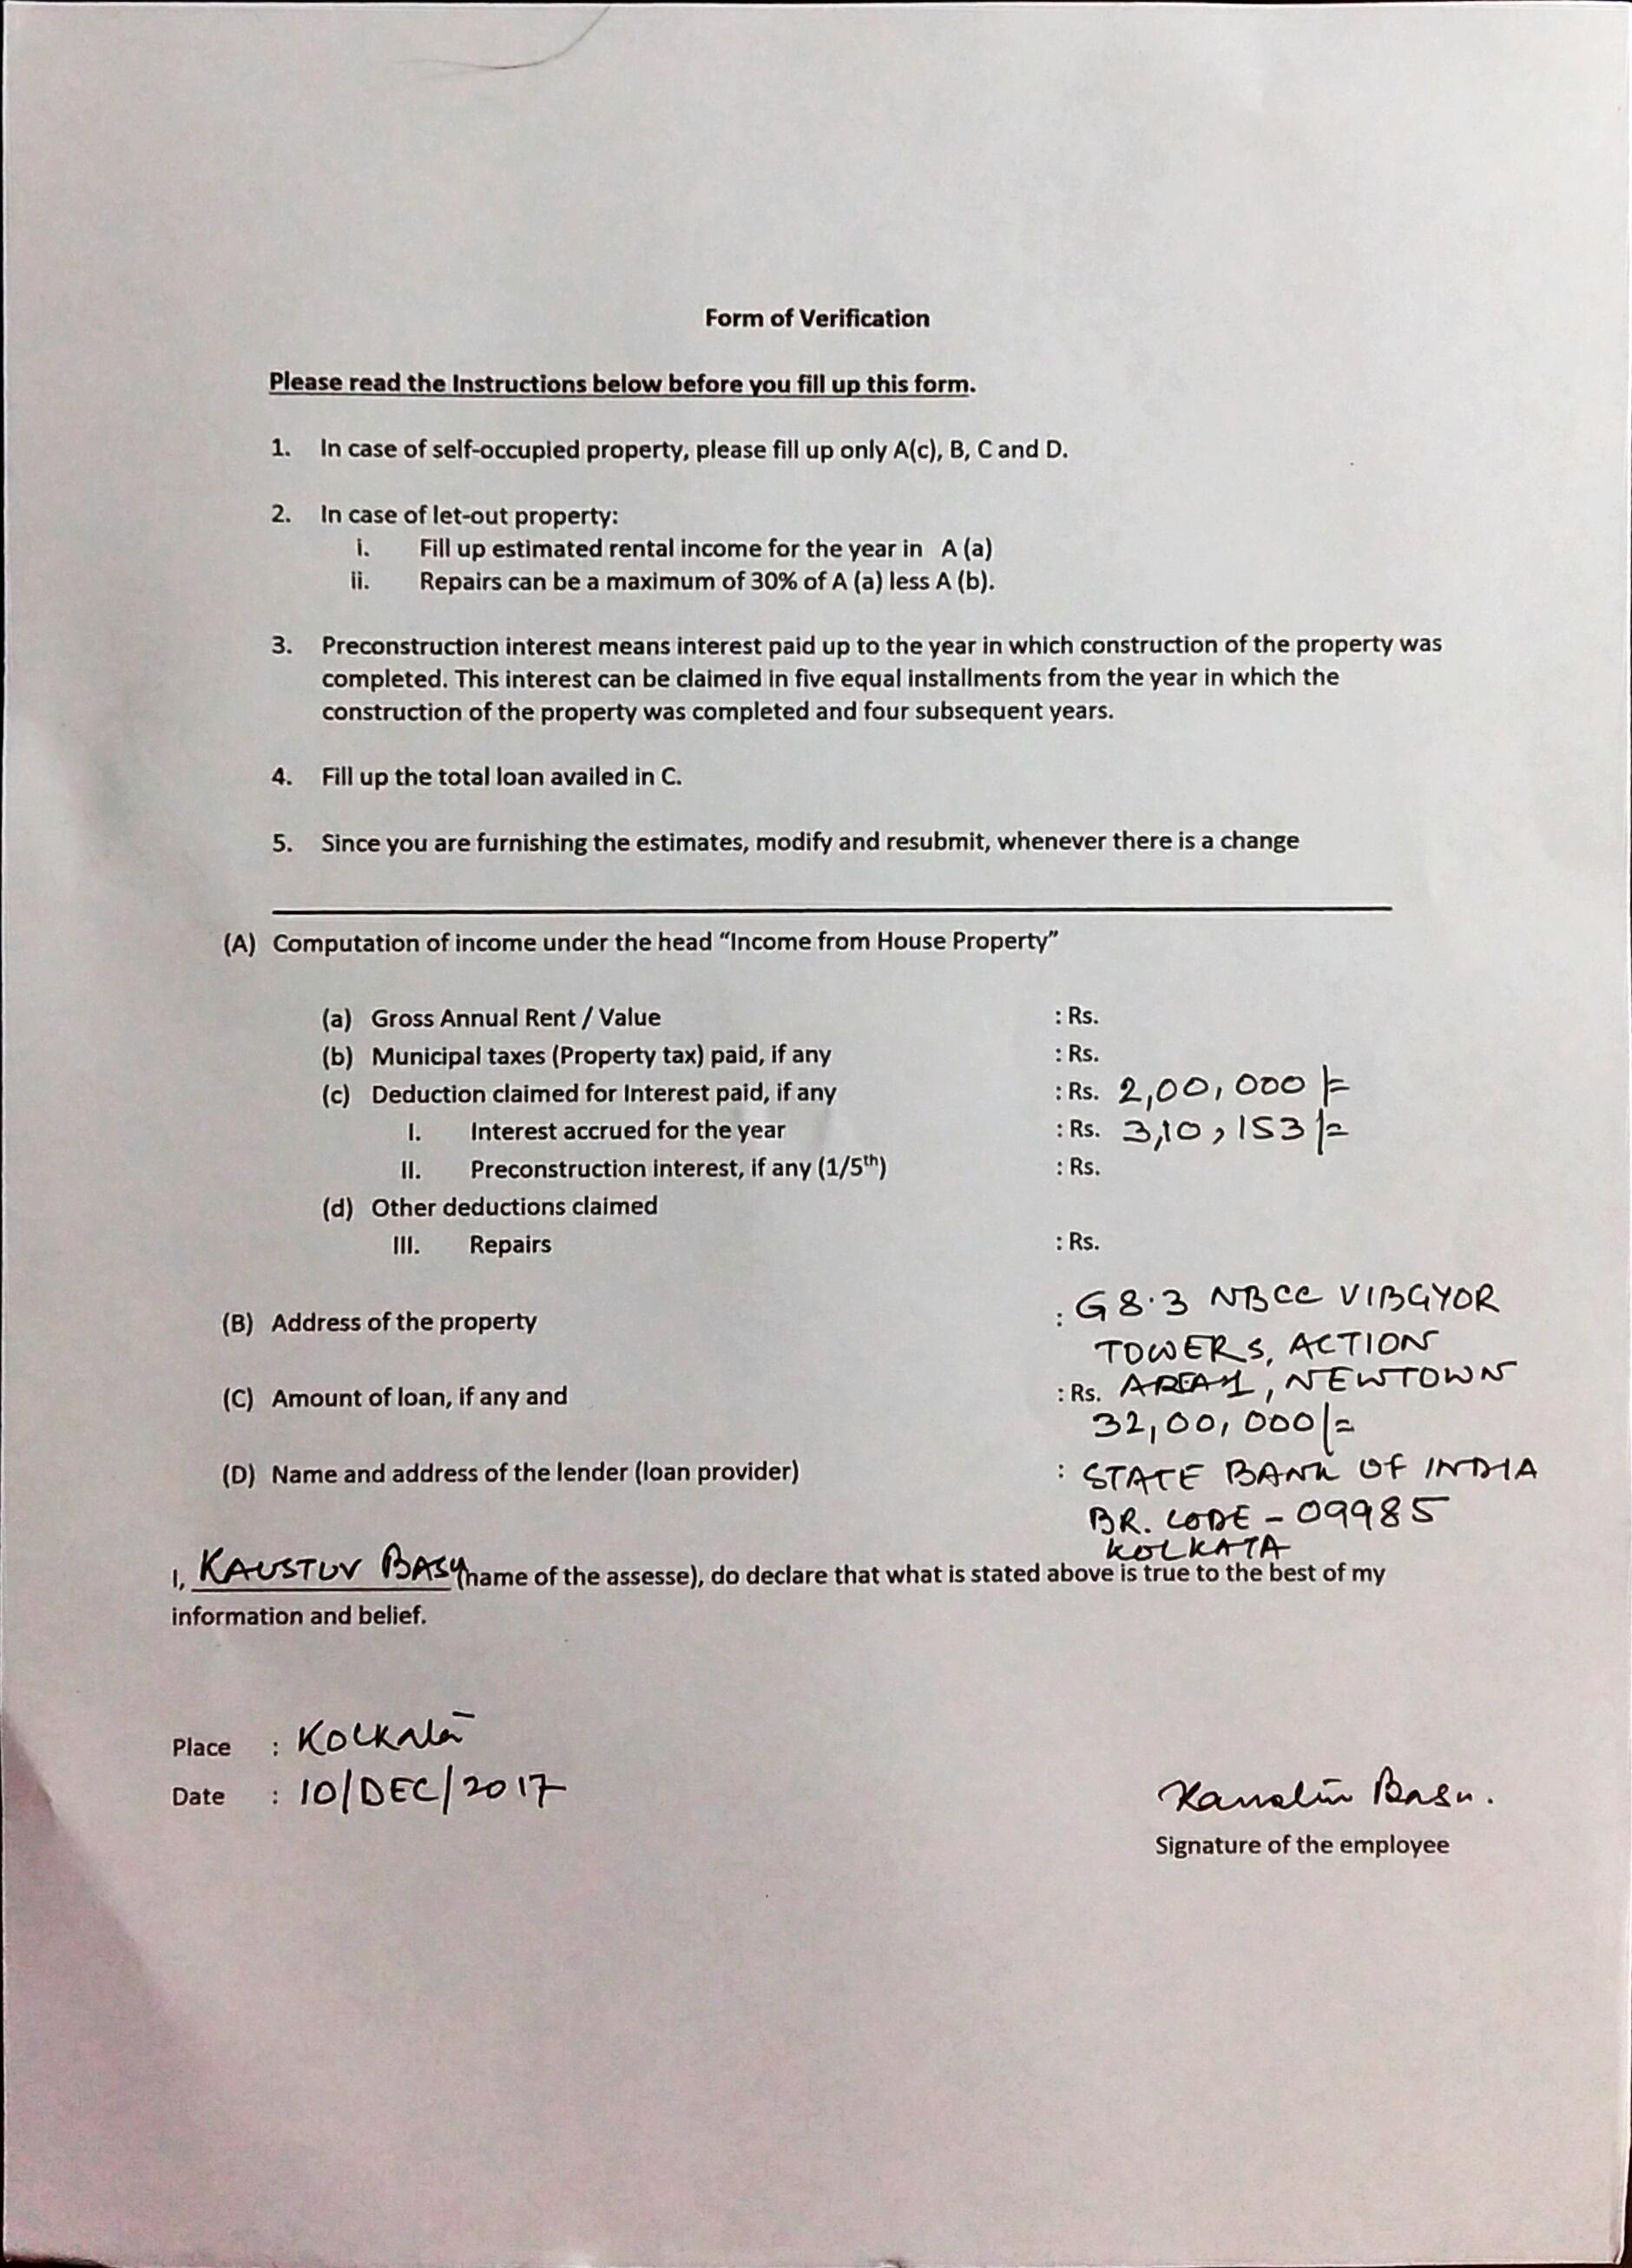 Form of Verification
Please read the Instructions below before you fill up this form.
1. In case of self-occupied property, please fill up only A(c), B, C and D.
2. In case of let-out property:
i. Fill up estimated rental income for the year in A (a)
ii. Repairs can be a maximum of 30% of A (a) less A (b).
3. Preconstruction interest means interest paid up to the year in which construction of the property was
completed. This interest can be claimed in five equal installments from the year in which the
construction of the property was completed and four subsequent years.
4. Fill up the total loan availed in C.
5. Since you are furnishing the estimates, modify and resubmit, whenever there is a change
(A) Computation of income under the head “Income from House Property”
(a) Gross Annual Rent / Value : Rs.
(b) Municipal taxes (Property tax) paid, if any : Rs.
(c) Deduction claimed for Interest paid, if any : Rs. 2,00,000/=
I. Interest accrued for the year : Rs. 3,10,153/=
II. Preconstruction interest, if any (1/5th) : Rs.
(d) Other deductions claimed
III. Repairs : Rs.
(B) Address of the property : G8.3 NBCC VIBGYOR
TOWERS, ACTION
(C) Amount of loan, if any and : Rs. AREA 1, NEWTOWN
32,00,000/=
(D) Name and address of the lender (loan provider) : STATE BANK OF INDIA
BR. CODE - 09985
KOLKATA
I, KAUSTUV BASU (name of the assesse), do declare that what is stated above is true to the best of my
information and belief.
Place : Kolkata
Date : 10/DEC/2017
Kaustuv Basu.
Signature of the employee